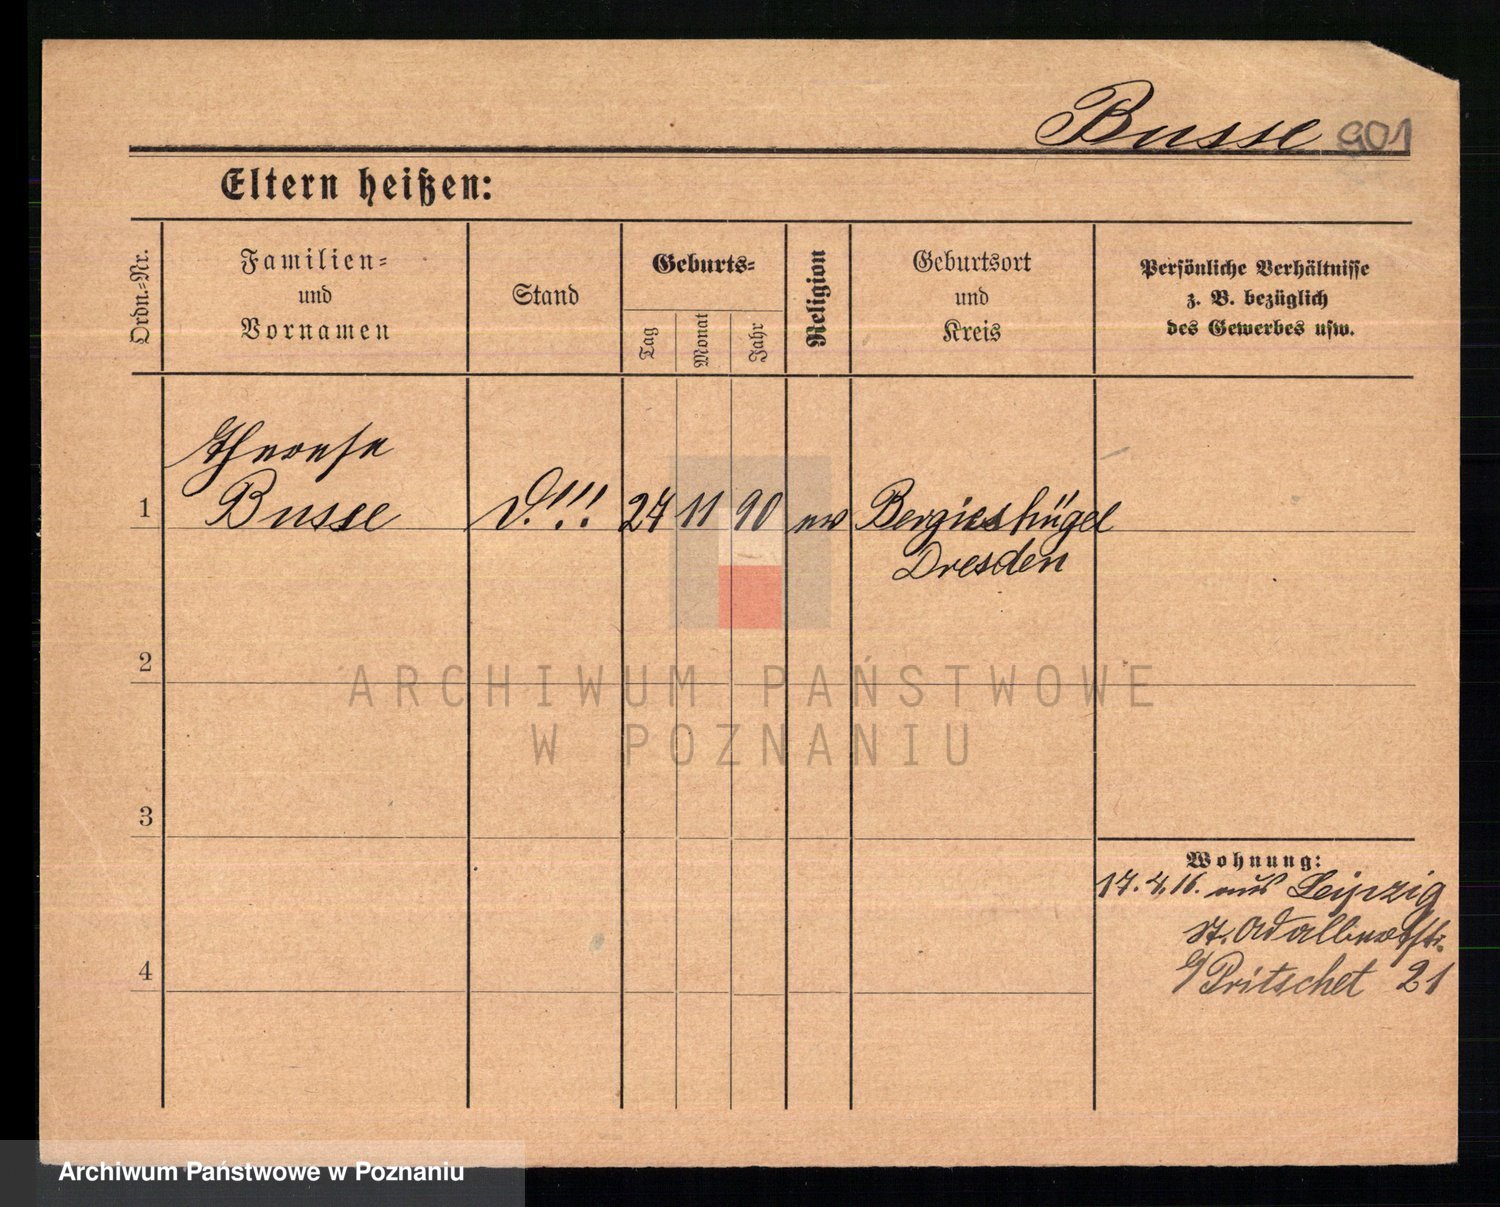 Busse 901
Eltern heißen:
Ordn.-Nr.
Familien-
und
Vornamen
Stand
Geburts-
Tag
Monat
Jahr
Religion
Geburtsort
und
Kreis
Persönliche Verhältnisse
z. B. bezüglich
des Gewerbes usw.
Therese
1 Busse D.!!! 24 11 90 ev Bergieshügel
Dresden
2
3
4
Wohnung:
17.4.16. aus Leipzig
St. Adalbertstr.
b/ Pritschet 21
ARCHIWUM PAŃSTWOWE
W POZNANIU
Archiwum Państwowe w Poznaniu